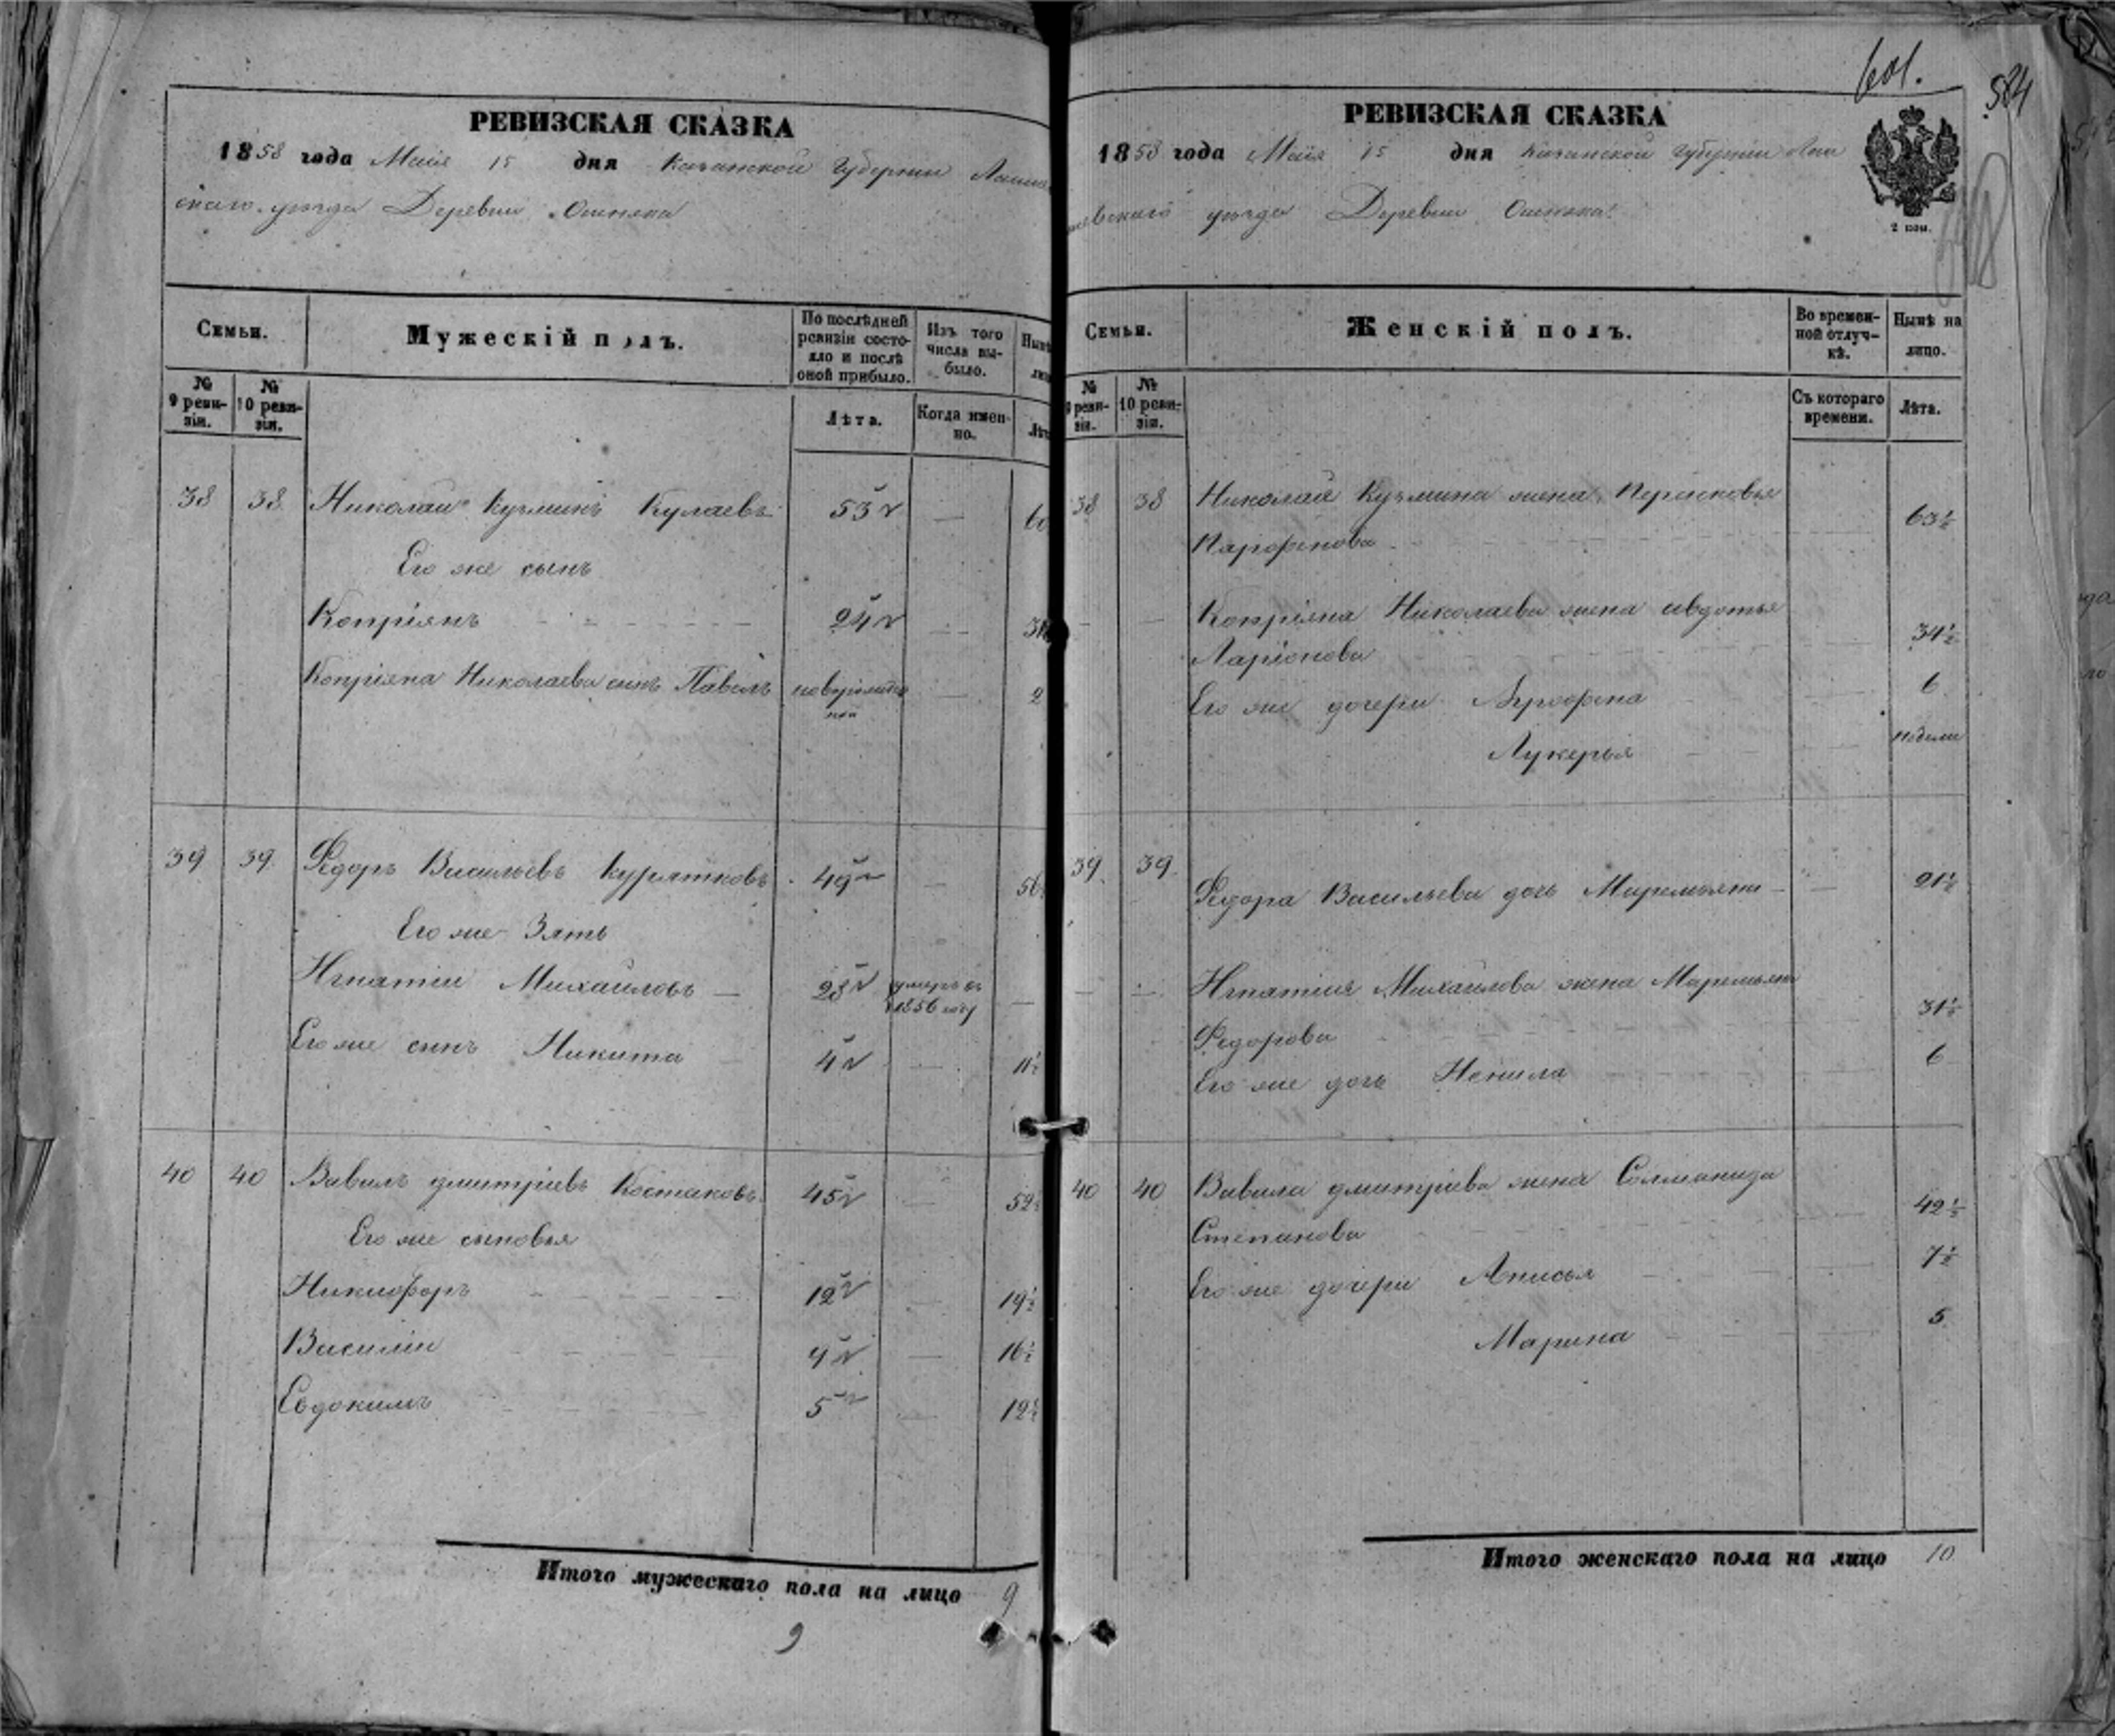 РЕВИЗСКАЯ СКАЗКА
1858 года Майя 15 дня Казанской Губернии Лаише
скаго уѣзда Деревни Ошняка
Семьи.
Мужескій полъ.
По послѣдней ревизіи состояло и послѣ оной прибыло.
Изъ того числа выбыло.
№ 9 ревизіи.
№ 10 ревизіи.
Лѣта.
Когда именно.
38 38 Николай Кузминъ Кулаевъ 53 —
Его же сынъ
Копріянъ 24 —
Копріяна Николаева сынъ Павелъ новорожденной — 2
39 39 Федоръ Васильевъ Курятковъ 49 — 56
Его же Зять
Игнатіи Михаиловъ — 28 умеръ въ 1856 году —
Его же сынъ Никита 4 — 11½
40 40 Вавилъ дмитріевъ Костаковъ 45 — 52½
Его же сыновья
Никифоръ 12 — 19½
Василіи — 16½
Евдокимъ 5 — 12½
Итого мужескаго пола на лицо 9
9
601.
584
РЕВИЗСКАЯ СКАЗКА
1858 года Майя 15 дня Казанской Губерніи Лаи
шевскаго уѣзда Деревни Ошняка
2 коп.
Семьи.
Женскій полъ.
Во временной отлучкѣ.
Нынѣ на лицо.
№ 9 ревизіи.
№ 10 ревизіи.
Съ котораго времени.
Лѣта.
38 38 Николая Кузмина жена Перасковья
Парфенова 63½
Копріяна Николаева жена авдотья
Ларіонова 34½
Его же дочери Агрофена 6
Лукерья недели
39 39 Федора Васильева дочь Маремьяна — 21½
Игнатія Михаилова жена Маремьяна
Федорова 31½
Его же дочь Ненила 6
40 40 Вавила дмитріева жена Солманида
Степанова 42½
Его же дочери Анисья 7½
Марина 5
Итого женскаго пола на лицо 10